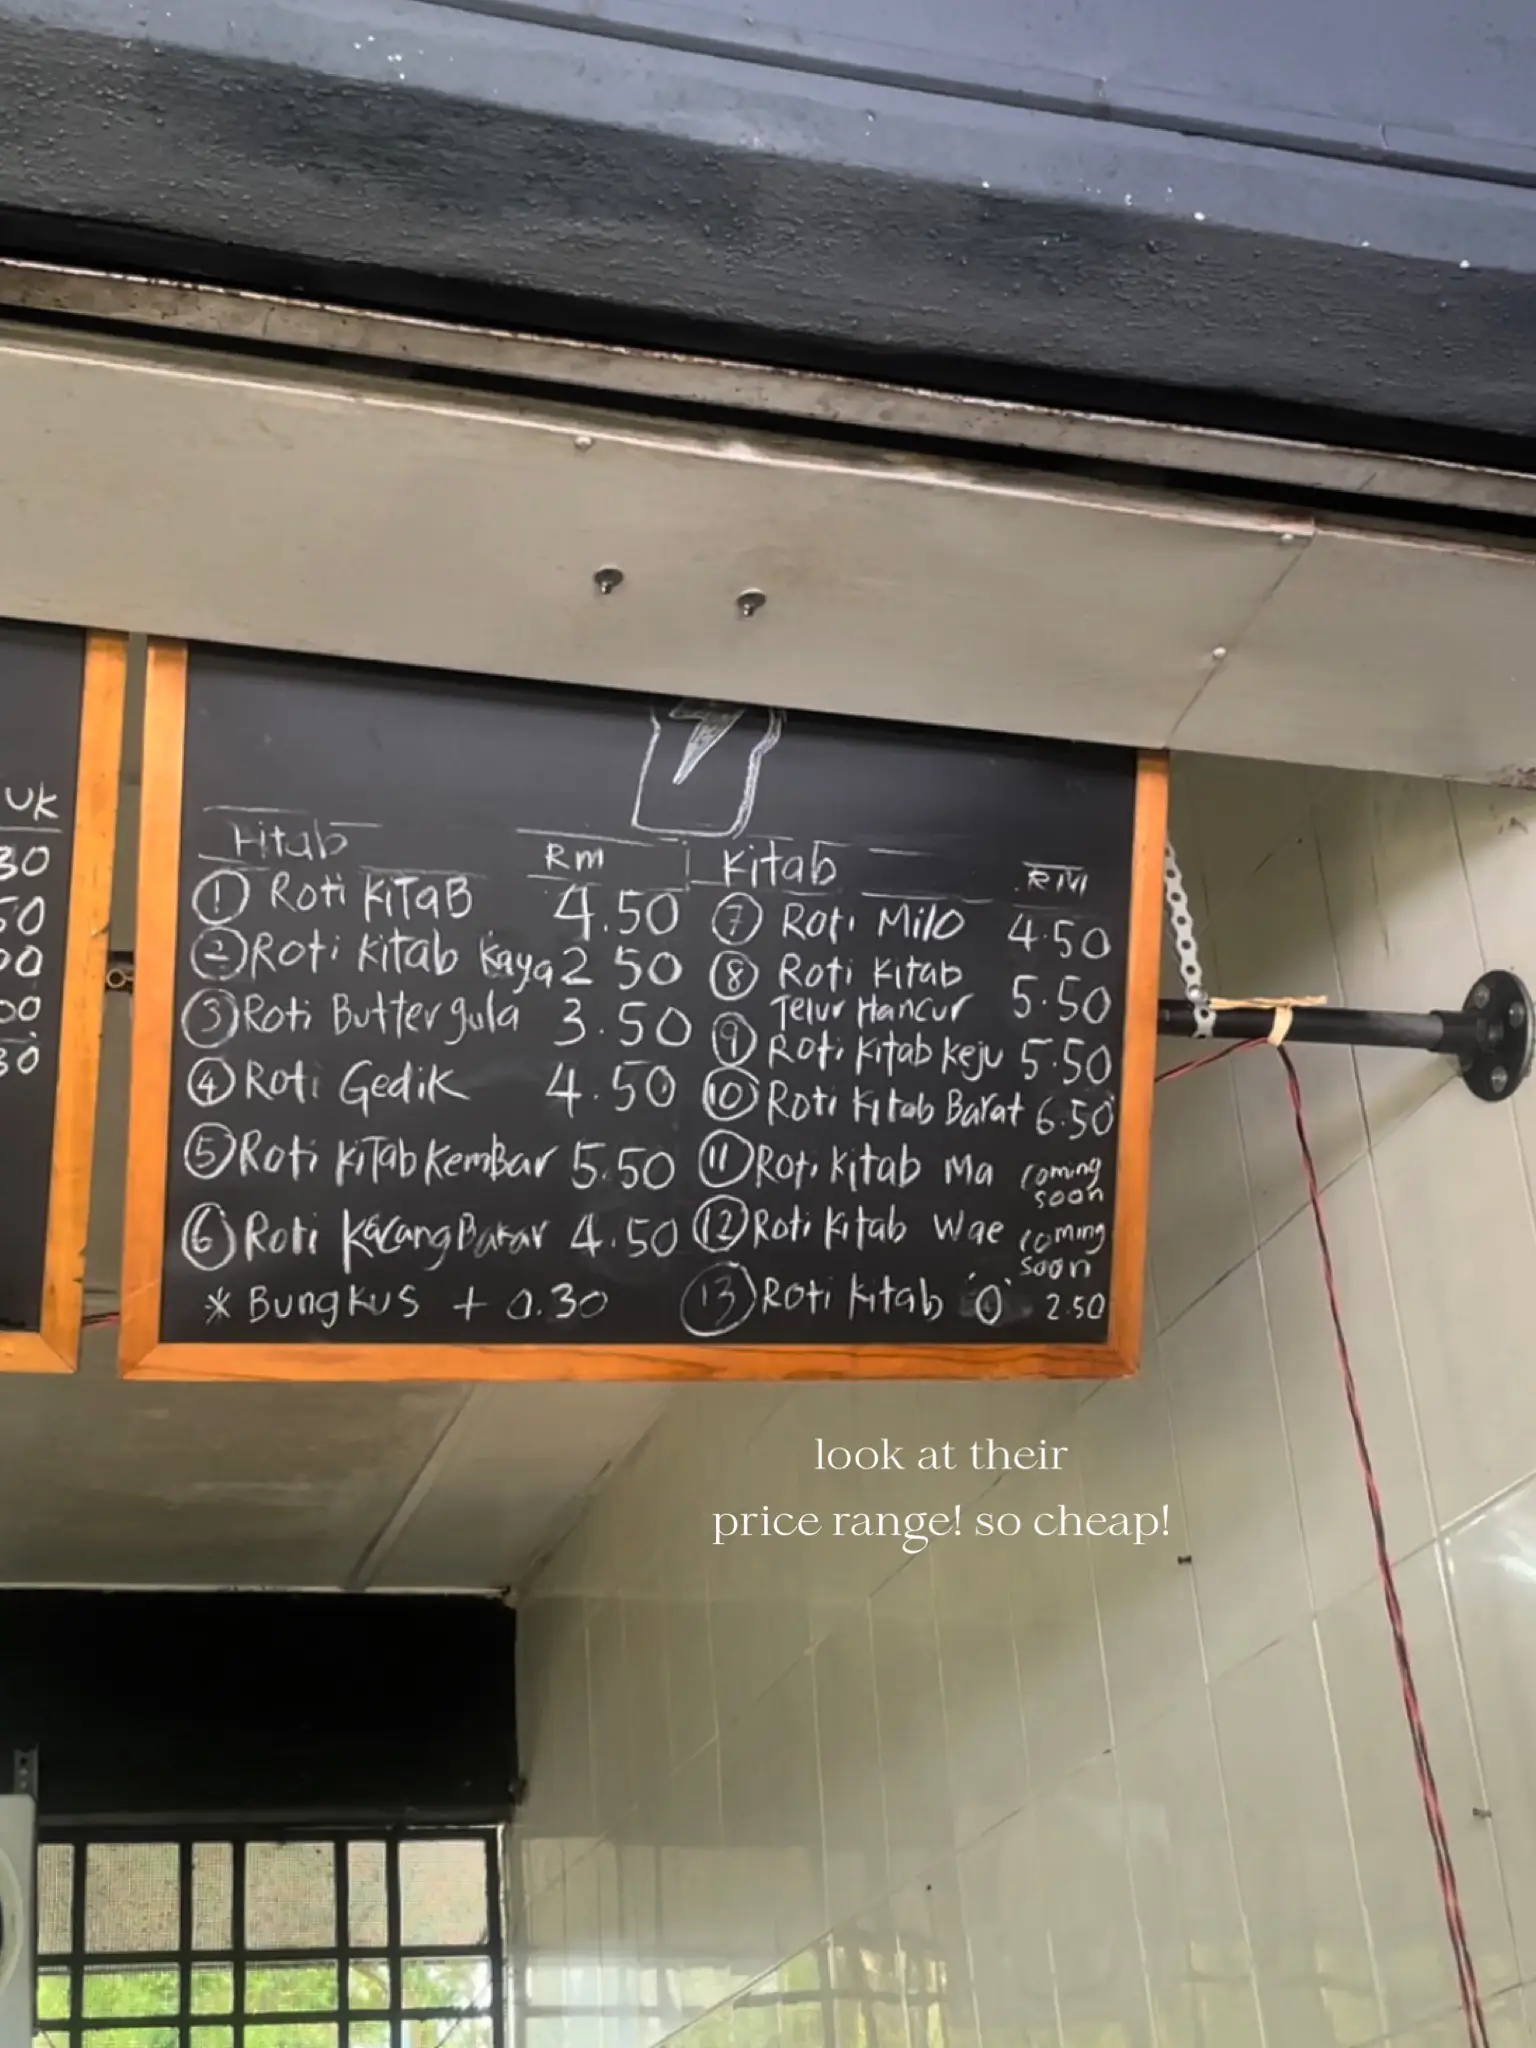 UK
30
50
00
00
30
Kitab RM
1 Roti KITAB 4.50
2 Roti Kitab Kaya 2 50
3 Roti Butter gula 3.50
4 Roti Gedik 4.50
5 Roti KiTab Kembar 5.50
6 Roti Kacang Bakar 4.50
* Bungkus + 0.30
Kitab RM
7 Roti Milo 4.50
8 Roti Kitab
Telur Hancur 5.50
9 Roti Kitab Keju 5.50
10 Roti Kitab Barat 6.50
11 Roti Kitab Ma coming
soon
12 Roti Kitab Wae coming
soon
13 Roti Kitab 'O' 2.50
look at their
price range! so cheap!